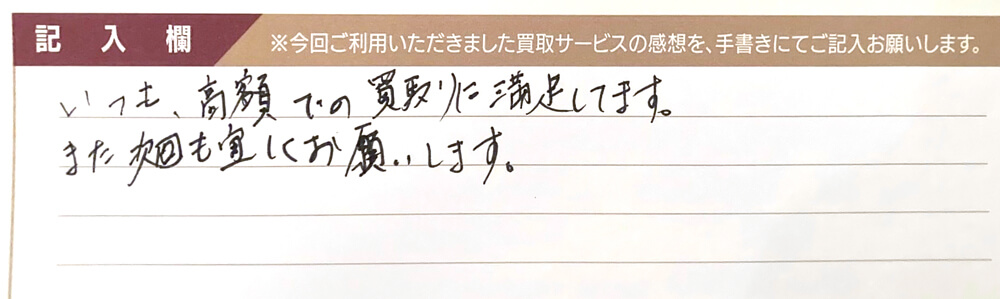 記入欄
※今回ご利用いただきました買取サービスの感想を、手書きにてご記入お願いします。
いつも、高額での買取りに満足してます。
また次回も宜しくお願いします。